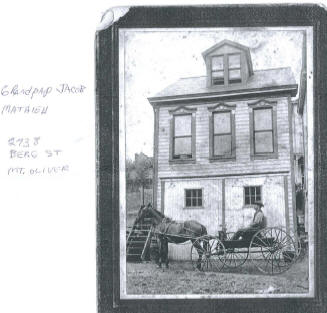 Grandpap JACOB
MATHIEU
2738
BERG ST
MT. OLIVER